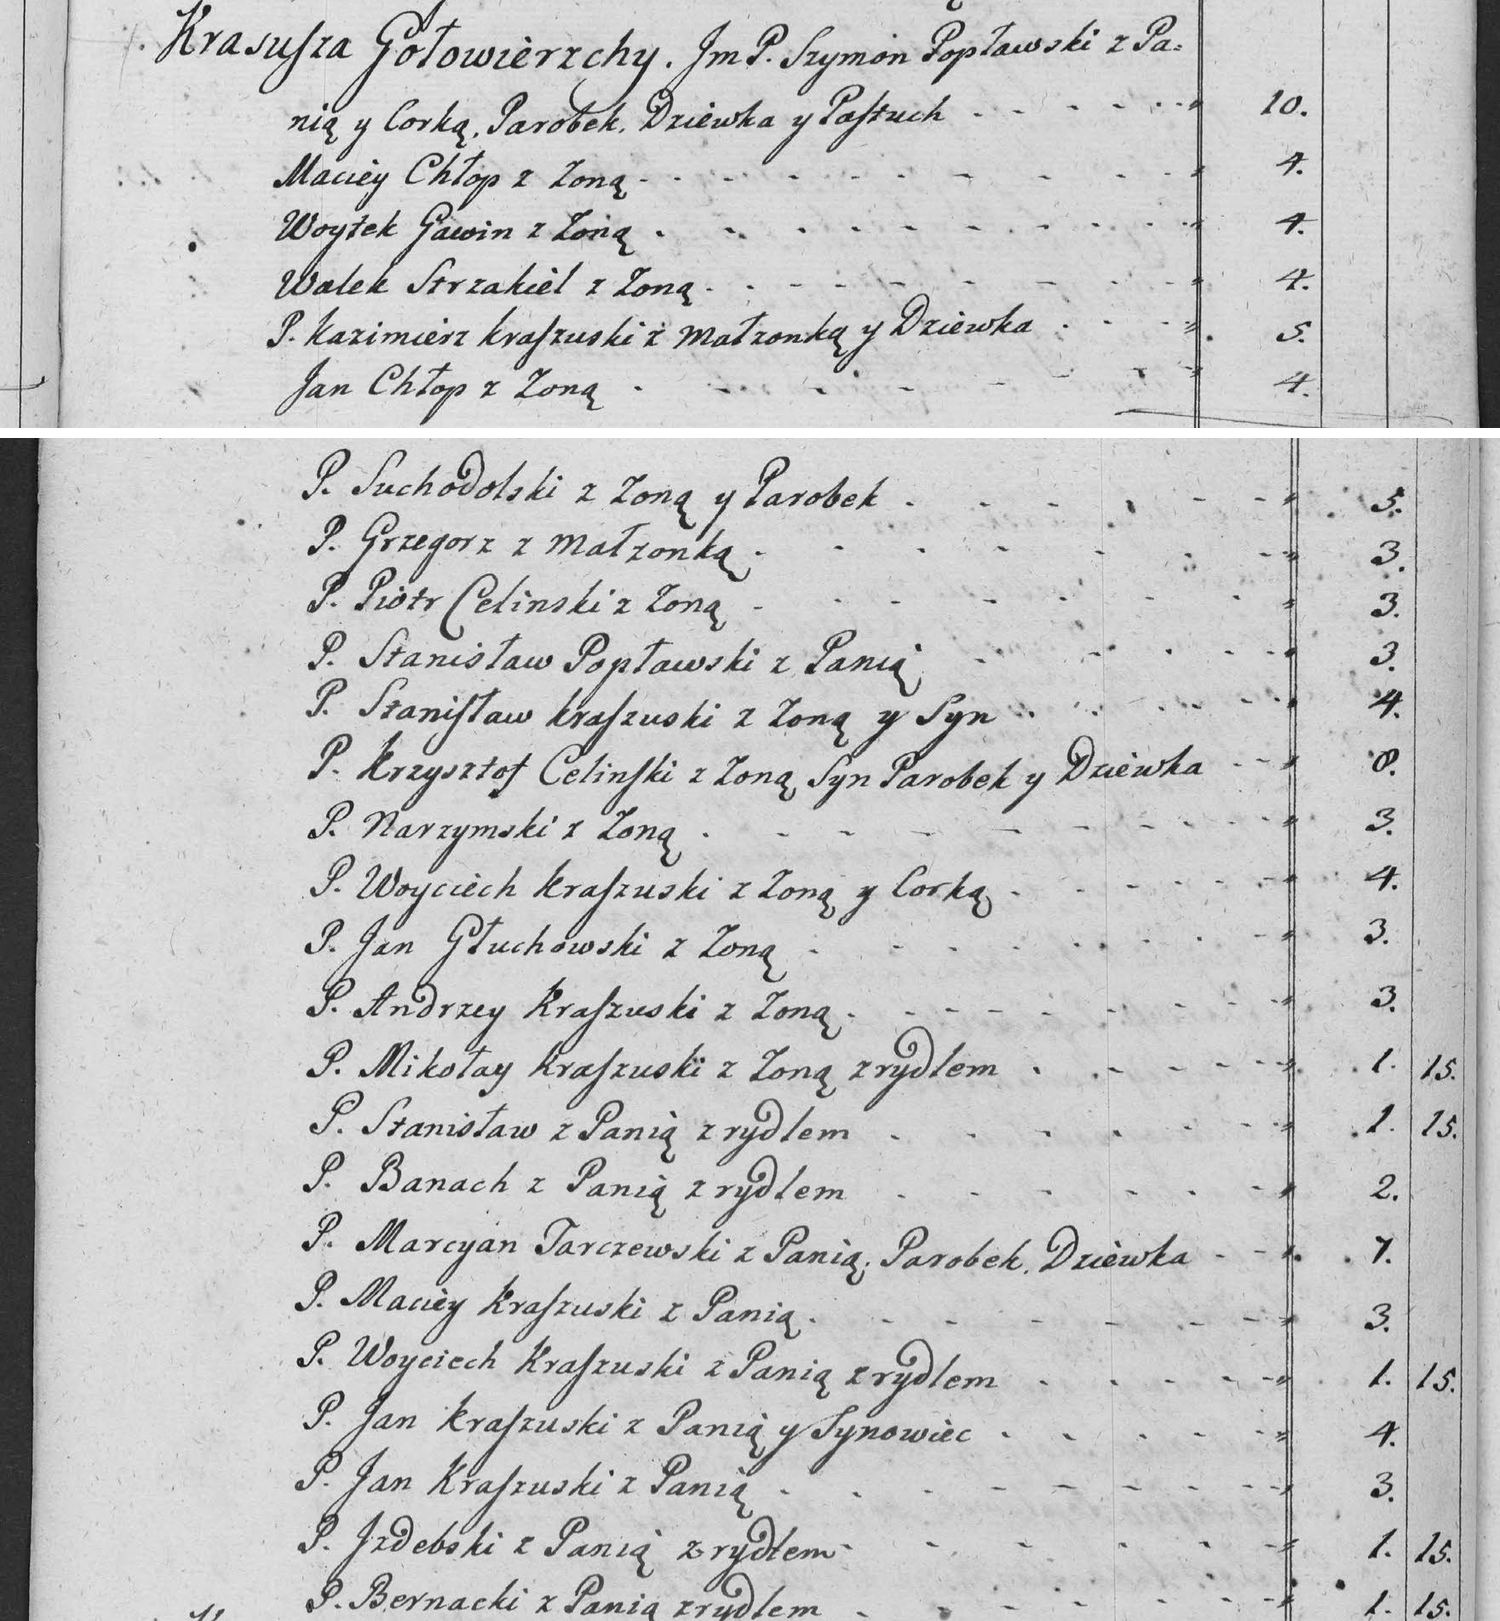 Krasusza Gołowierzchy. Jm P. Szymon Popławski z Pa=
nią y Corką, Parobek, Dziewka y Pastuch - - - - - " 10.
Maciey Chłop z Zoną - - - - - - - - " 4.
Woytek Gawin z Zoną - - - - - - - - " 4.
Walek Strzakiel z Zoną - - - - - - - - " 4.
P. Kazimierz Kraszuski z Małzonką y Dziewka - - - " 5.
Jan Chłop z Zoną - - - - - - - - " 4.
P. Suchodolski z Zoną y Parobek - - - - - - " 5.
P. Grzegorz z Małzonką - - - - - - - " 3.
P. Piotr Celinski z Zoną - - - - - - - " 3.
P. Stanisław Popławski z Panią - - - - - " 3.
P. Stanisław Kraszuski z Zoną y Syn - - - - - " 4.
P. Krzysztof Celinski z Zoną, Syn Parobek y Dziewka - - " 8.
P. Narzymski z Zoną - - - - - - - - " 3.
P. Woyciech Kraszuski z Zoną y Corką - - - - - " 4.
P. Jan Głuchowski z Zoną - - - - - - - " 3.
P. Andrzey Kraszuski z Zoną - - - - - - - " 3.
P. Mikołay Kraszuski z Zoną z rydlem - - - - - " 1. 15.
P. Stanisław z Panią z rydlem - - - - - - " 1. 15.
P. Banach z Panią z rydlem - - - - - - " 2.
P. Marcyan Tarczewski z Panią, Parobek, Dziewka - - " 7.
P. Maciey Kraszuski z Panią - - - - - - - " 3.
P. Woyciech Kraszuski z Panią z rydlem - - - - - " 1. 15.
P. Jan Kraszuski z Panią y Synowiec - - - - - " 4.
P. Jan Kraszuski z Panią - - - - - - - " 3.
P. Jzdebski z Panią z rydlem - - - - - - " 1. 15.
P. Bernacki z Panią z rydlem - - - - - - " 1. 15.